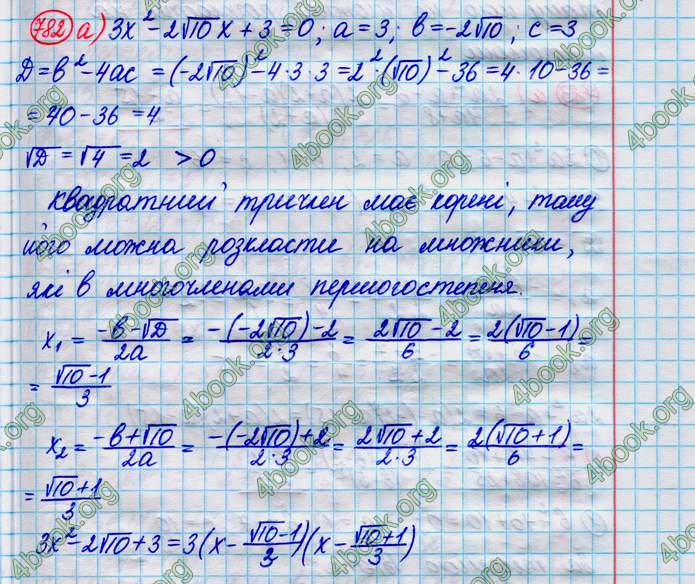 782 а) 3x² - 2√10 x + 3 = 0; a = 3; b = -2√10; c = 3
D = b² - 4ac = (-2√10)² - 4·3·3 = 2²·(√10)² - 36 = 4·10 - 36 =
= 40 - 36 = 4
√D = √4 = 2 > 0
Квадратний тричлен має корені, тому
його можна розкласти на множники,
які є многочленами першого степеня.
x₁ = (-b - √D)/2a = (-(-2√10) - 2)/(2·3) = (2√10 - 2)/6 = 2(√10 - 1)/6 =
= (√10 - 1)/3
x₂ = (-b + √10)/2a = (-(-2√10) + 2)/(2·3) = (2√10 + 2)/(2·3) = 2(√10 + 1)/6 =
= (√10 + 1)/3
3x² - 2√10 + 3 = 3(x - (√10 - 1)/3)(x - (√10 + 1)/3)
4book.org